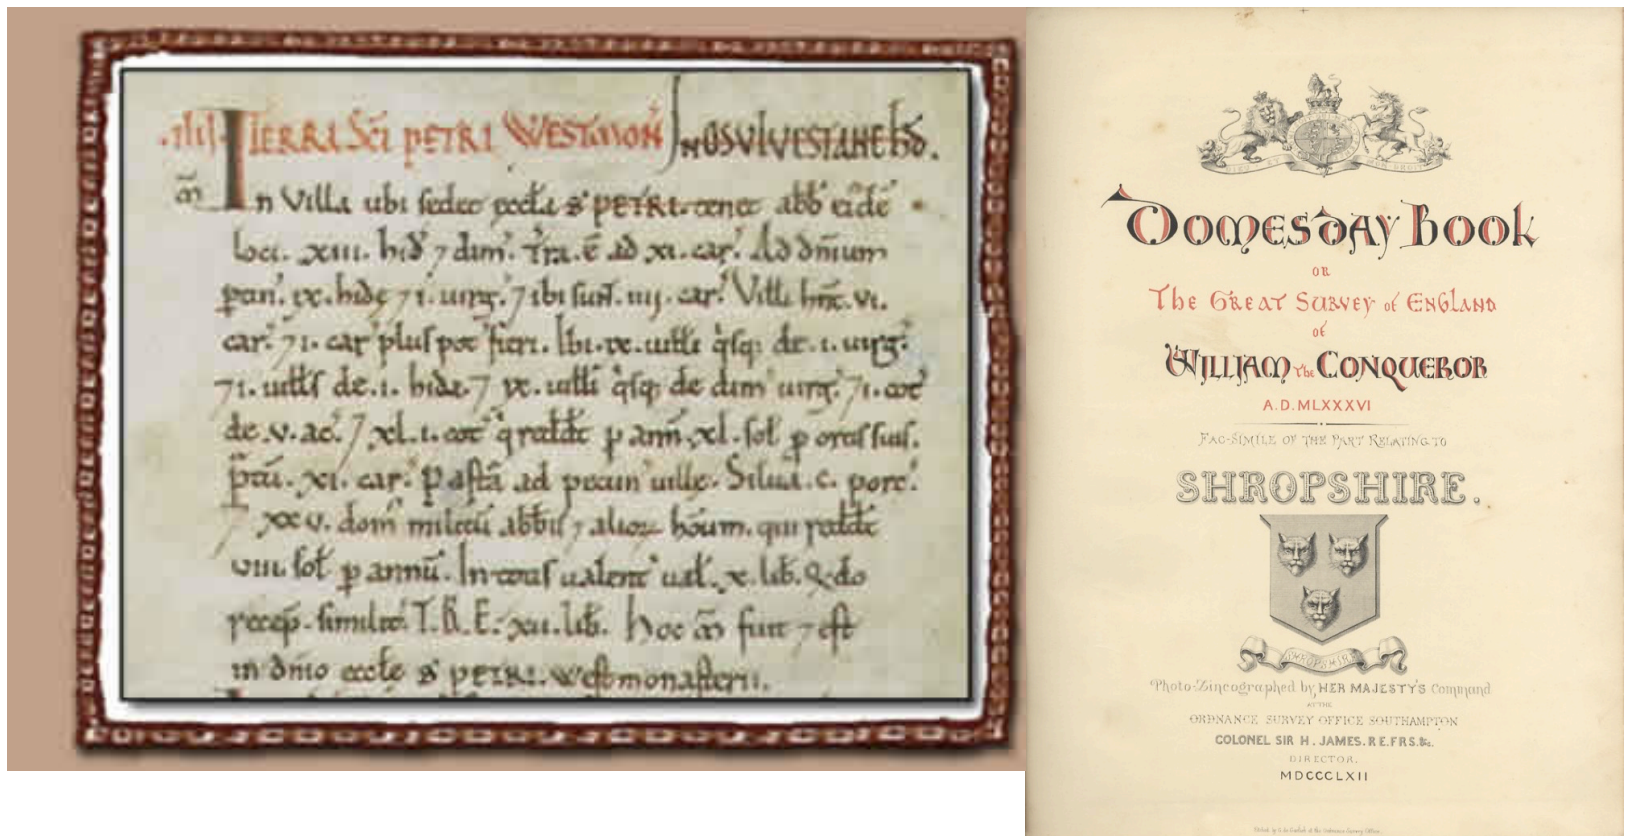 .iiii. TERRA SCI PETRI WESTMON. IN OSVLVESTANE HD.
M In Villa ubi sedet æccła S PETRI. tenet abb eiđe
loci. xiii. hid 7 dim. Tra. ē ad xi. car. Ad dnium
ptin. ix. hidę 7 i. uirg. 7 ibi sunt. iiij. car. Villi hnt. vi.
car. 7 i. car plus pot fieri. Ibi. ix. uilli qsq; de. i. uirg.
7 i. uills de. i. hida. 7 ix. uilli qsq; de dim uirg. 7 i. cot
de. v. ac. 7 xl. i. cot q redđt p ann. xl. sol p ortis suis.
ptū. xi. car. Pastā ad pecun uillę. Silua. c. porc.
7 xxv. dom militū abbis 7 alioꝝ hōum. qui redđt
viii. sol p annū. In totis ualent ual. x. lib. Qdo
recep. similit. T.R.E. xii. lib. Hoc M fuit 7 est
in dnio æccłe S PETRI. Westmonasterii.
DOMESDAY BOOK
OR
The GREAT SURVEY of ENGLAND
of
WILLIAM The CONQUEROR
A.D. MLXXXVI
FAC-SIMILE OF THE PART RELATING TO
SHROPSHIRE.
SHROPSHIRE
Photo-Zincographed by HER MAJESTY'S Command
AT THE
ORDNANCE SURVEY OFFICE SOUTHAMPTON
COLONEL SIR H. JAMES. R.E. F.R.S. &c.
DIRECTOR.
MDCCCLXII